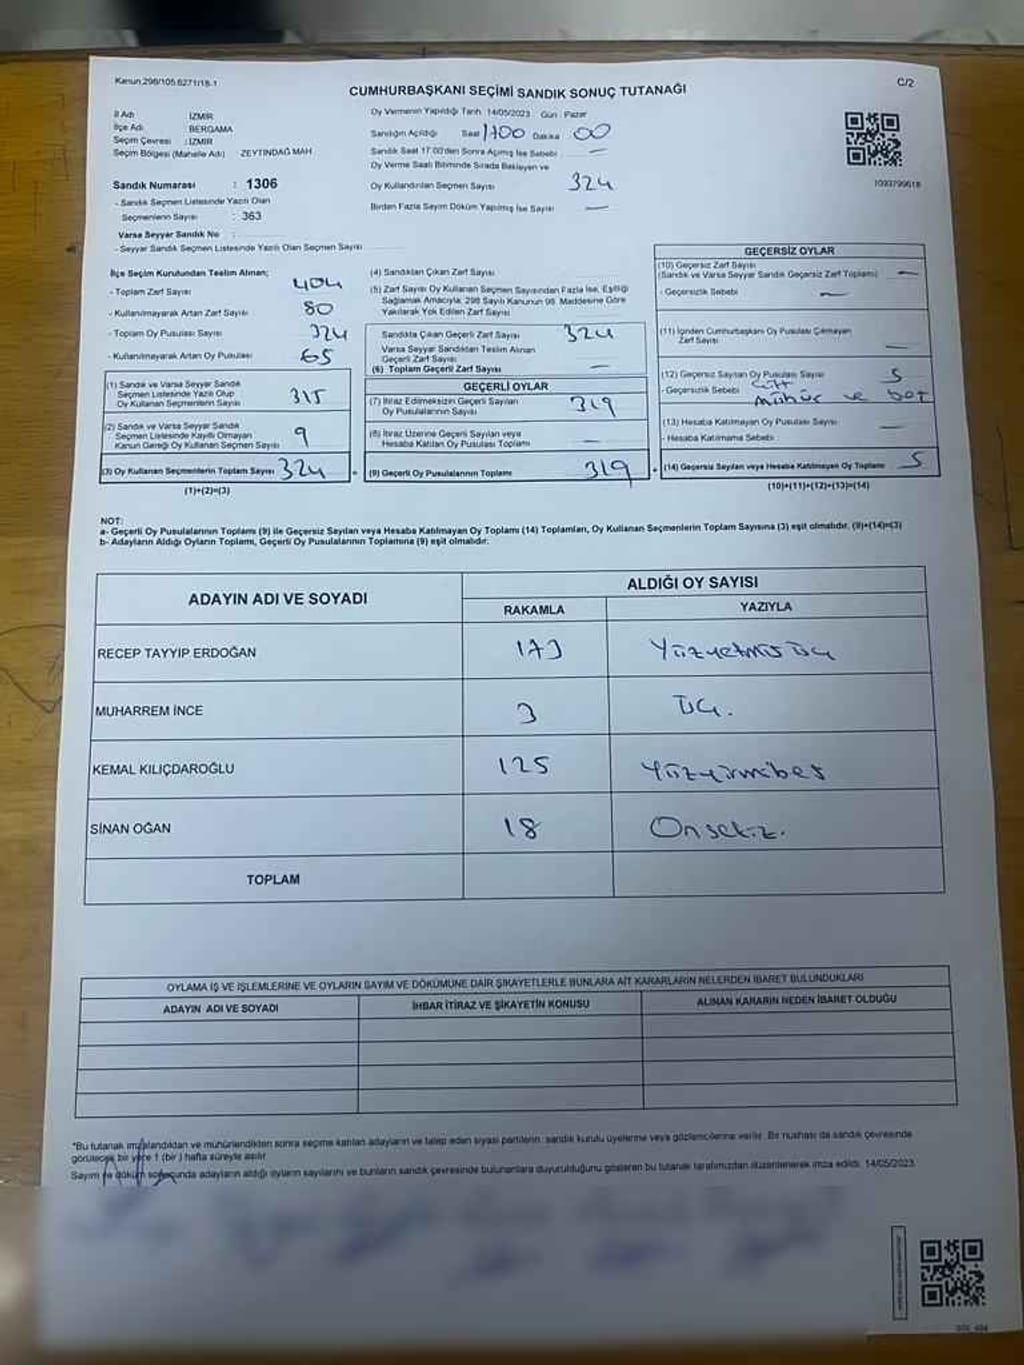 Kanun:298/105 6271/18-1
C/2
CUMHURBAŞKANI SEÇİMİ SANDIK SONUÇ TUTANAĞI
İl Adı İZMİR
İlçe Adı BERGAMA
Seçim Çevresi : İZMİR
Seçim Bölgesi (Mahalle Adı) : ZEYTİNDAĞ MAH.
Sandık Numarası : 1306
- Sandık Seçmen Listesinde Yazılı Olan
Seçmenlerin Sayısı : 363
Varsa Seyyar Sandık No :
- Seyyar Sandık Seçmen Listesinde Yazılı Olan Seçmen Sayısı
Oy Vermenin Yapıldığı Tarih 14/05/2023 Gün : Pazar
Sandığın Açıldığı Saat 1700 Dakika 00
Sandık Saat 17.00'den Sonra Açılmış İse Sebebi —
Oy Verme Saati Bitiminde Sırada Bekleyen ve
Oy Kullandırılan Seçmen Sayısı 324
Birden Fazla Sayım Döküm Yapılmış İse Sayısı —
1093799618
İlçe Seçim Kurulundan Teslim Alınan;
- Toplam Zarf Sayısı 404
- Kullanılmayarak Artan Zarf Sayısı 80
- Toplam Oy Pusulası Sayısı 324
- Kullanılmayarak Artan Oy Pusulası 65
(1) Sandık ve Varsa Seyyar Sandık
Seçmen Listesinde Yazılı Olup
Oy Kullanan Seçmenlerin Sayısı 315
(2) Sandık ve Varsa Seyyar Sandık
Seçmen Listesinde Kayıtlı Olmayan
Kanun Gereği Oy Kullanan Seçmen Sayısı 9
(3) Oy Kullanan Seçmenlerin Toplam Sayısı 324
(1)+(2)=(3)
(4) Sandıktan Çıkan Zarf Sayısı
(5) Zarf Sayısı Oy Kullanan Seçmen Sayısından Fazla İse, Eşitliği
Sağlamak Amacıyla, 298 Sayılı Kanunun 98. Maddesine Göre
Yakılarak Yok Edilen Zarf Sayısı
Sandıkta Çıkan Geçerli Zarf Sayısı 324
Varsa Seyyar Sandıktan Teslim Alınan
Geçerli Zarf Sayısı
(6) Toplam Geçerli Zarf Sayısı —
GEÇERLİ OYLAR
(7) İtiraz Edilmeksizin Geçerli Sayılan
Oy Pusulalarının Sayısı 319
(8) İtiraz Üzerine Geçerli Sayılan veya
Hesaba Katılan Oy Pusulası Toplamı —
(9) Geçerli Oy Pusulalarının Toplamı 319
GEÇERSİZ OYLAR
(10) Geçersiz Zarf Sayısı
(Sandık ve Varsa Seyyar Sandık Geçersiz Zarf Toplamı) —
- Geçersizlik Sebebi —
(11) İçinden Cumhurbaşkanı Oy Pusulası Çıkmayan
Zarf Sayısı —
(12) Geçersiz Sayılan Oy Pusulası Sayısı 5
- Geçersizlik Sebebi çift
mühür ve boş
(13) Hesaba Katılmayan Oy Pusulası Sayısı —
- Hesaba Katılmama Sebebi
(14) Geçersiz Sayılan veya Hesaba Katılmayan Oy Toplamı 5
(10)+(11)+(12)+(13)=(14)
NOT:
a- Geçerli Oy Pusulalarının Toplamı (9) ile Geçersiz Sayılan veya Hesaba Katılmayan Oy Toplamı (14) Toplamları, Oy Kullanan Seçmenlerin Toplam Sayısına (3) eşit olmalıdır. (9)+(14)=(3)
b- Adayların Aldığı Oyların Toplamı, Geçerli Oy Pusulalarının Toplamına (9) eşit olmalıdır.
ADAYIN ADI VE SOYADI
ALDIĞI OY SAYISI
RAKAMLA YAZIYLA
RECEP TAYYİP ERDOĞAN 173 Yüzyetmiş üç
MUHARREM İNCE 3 Üç.
KEMAL KILIÇDAROĞLU 125 Yüzyirmibeş
SİNAN OĞAN 18 Onsekiz.
TOPLAM
OYLAMA İŞ VE İŞLEMLERİNE VE OYLARIN SAYIM VE DÖKÜMÜNE DAİR ŞİKAYETLERLE BUNLARA AİT KARARLARIN NELERDEN İBARET BULUNDUKLARI
ADAYIN ADI VE SOYADI İHBAR İTİRAZ VE ŞİKAYETİN KONUSU ALINAN KARARIN NEDEN İBARET OLDUĞU
*Bu tutanak imzalandıktan ve mühürlendikten sonra seçime katılan adayların ve talep eden siyasi partilerin sandık kurulu üyelerine veya gözlemcilerine verilir. Bir nushası da sandık çevresinde
görülecek bir yere 1 (bir) hafta süreyle asılır.
Sayım ve döküm sonucunda adayların aldığı oyların sayılarını ve bunların sandık çevresinde bulunanlara duyurulduğunu gösteren bu tutanak tarafımızdan düzenlenerek imza edildi. 14/05/2023